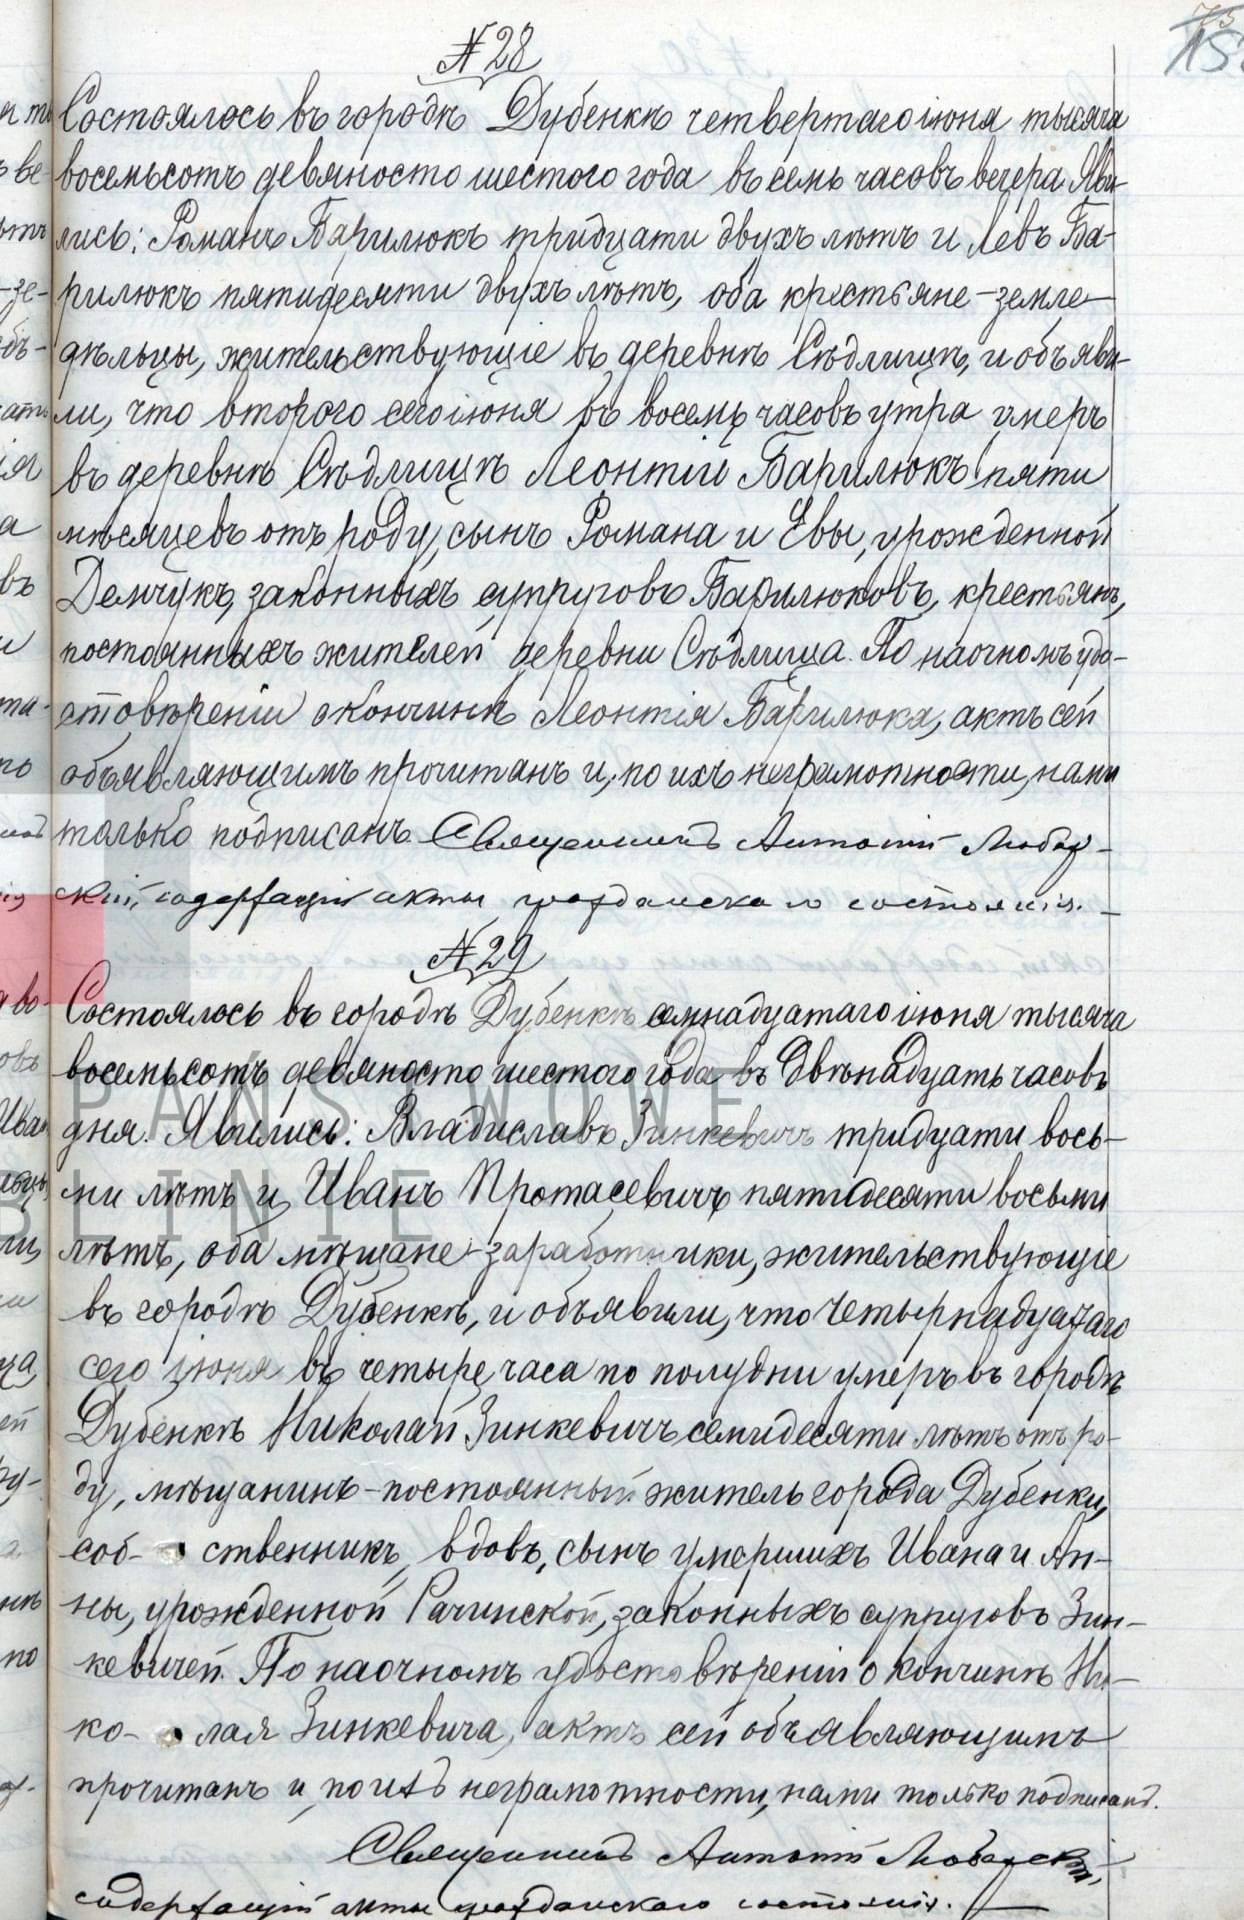 № 28
Состоялось въ городѣ Дубенкѣ четвертаго іюня тысяча
восемьсотъ девяносто шестого года въ семь часовъ вечера Яви-
лись: Романъ Барилюкъ тридцати двухъ лѣтъ и Левъ Ба-
рилюкъ пятидесяти двухъ лѣтъ, оба крестьяне-земле-
дѣльцы, жительствующіе въ деревнѣ Сѣдлищѣ, и объяви-
ли, что второго сего іюня въ восемь часовъ утра умеръ
въ деревнѣ Сѣдлищѣ Леонтій Барилюкъ пяти
мѣсяцевъ отъ роду, сынъ Романа и Евы, урожденной
Демчукъ, законныхъ супруговъ Барилюковъ, крестьянъ,
постоянныхъ жителей деревни Сѣдлища. По наочномъ удо-
стовѣреніи о кончинѣ Леонтія Барилюка, актъ сей
объявляющимъ прочитанъ и, по ихъ неграмотности, нами
только подписанъ. Священникъ Антоній Любар-
скій, содержащій акты гражданскаго состоянія.
№ 29
Состоялось въ городѣ Дубенкѣ семнадцатаго іюня тысяча
восемьсотъ девяносто шестого года въ двѣнадцать часовъ
дня. Явились: Владиславъ Зинкевичъ тридцати вось-
ми лѣтъ и Иванъ Протасевичъ пятидесяти восьми
лѣтъ, оба мѣщане-заработники, жительствующіе
въ городѣ Дубенкѣ, и объявили, что четырнадцатаго
сего іюня въ четыре часа по полудни умеръ въ городѣ
Дубенкѣ Николай Зинкевичъ семидесяти лѣтъ отъ ро-
ду, мѣщанинъ-постоянный житель города Дубенки,
соб- ственникъ, вдовъ, сынъ умершихъ Ивана и Ан-
ны, урожденной Рачинской, законныхъ супруговъ Зин-
кевичей. По наочномъ удостовѣреніи о кончинѣ Ни-
ко- лая Зинкевича, актъ сей объявляющимъ
прочитанъ и, по ихъ неграмотности, нами только подписанъ.
Священникъ Антоній Любарскій,
содержащій акты гражданскаго состоянія.
PAŃSTWOWE
BLINIE